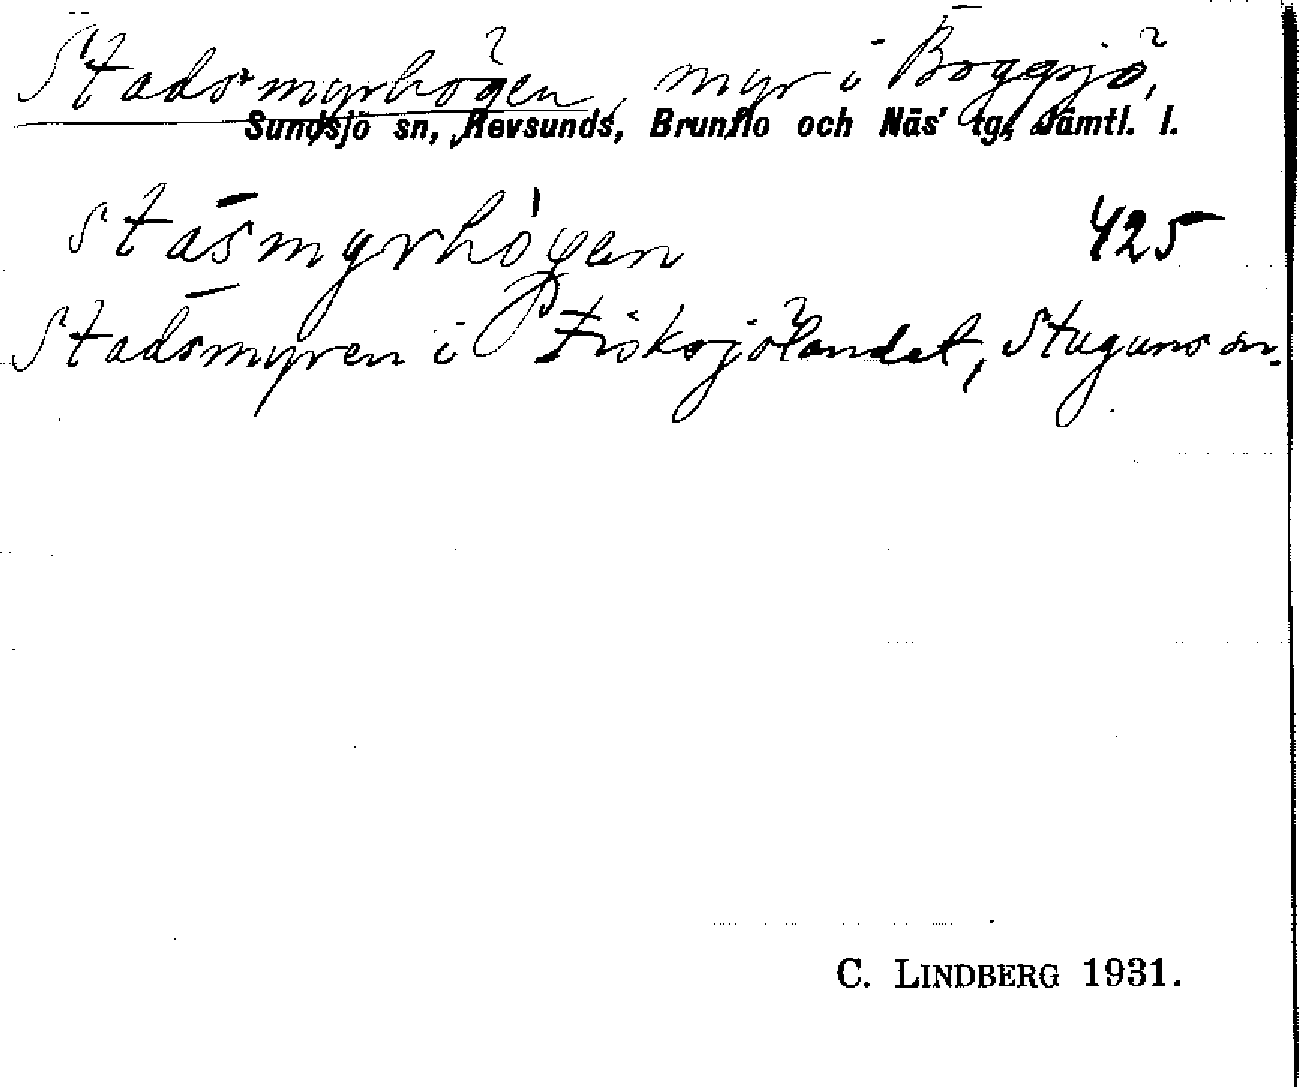 Stadsmyrhögen, myr i Böggsjö,
Sundsjö sn, Revsunds, Brunflo och Näs' tg, Jämtl. l.
stásmyrhö̀gen 425
Stadsmyren i Fisksjölandet, Stuguns sn.
C. LINDBERG 1931.